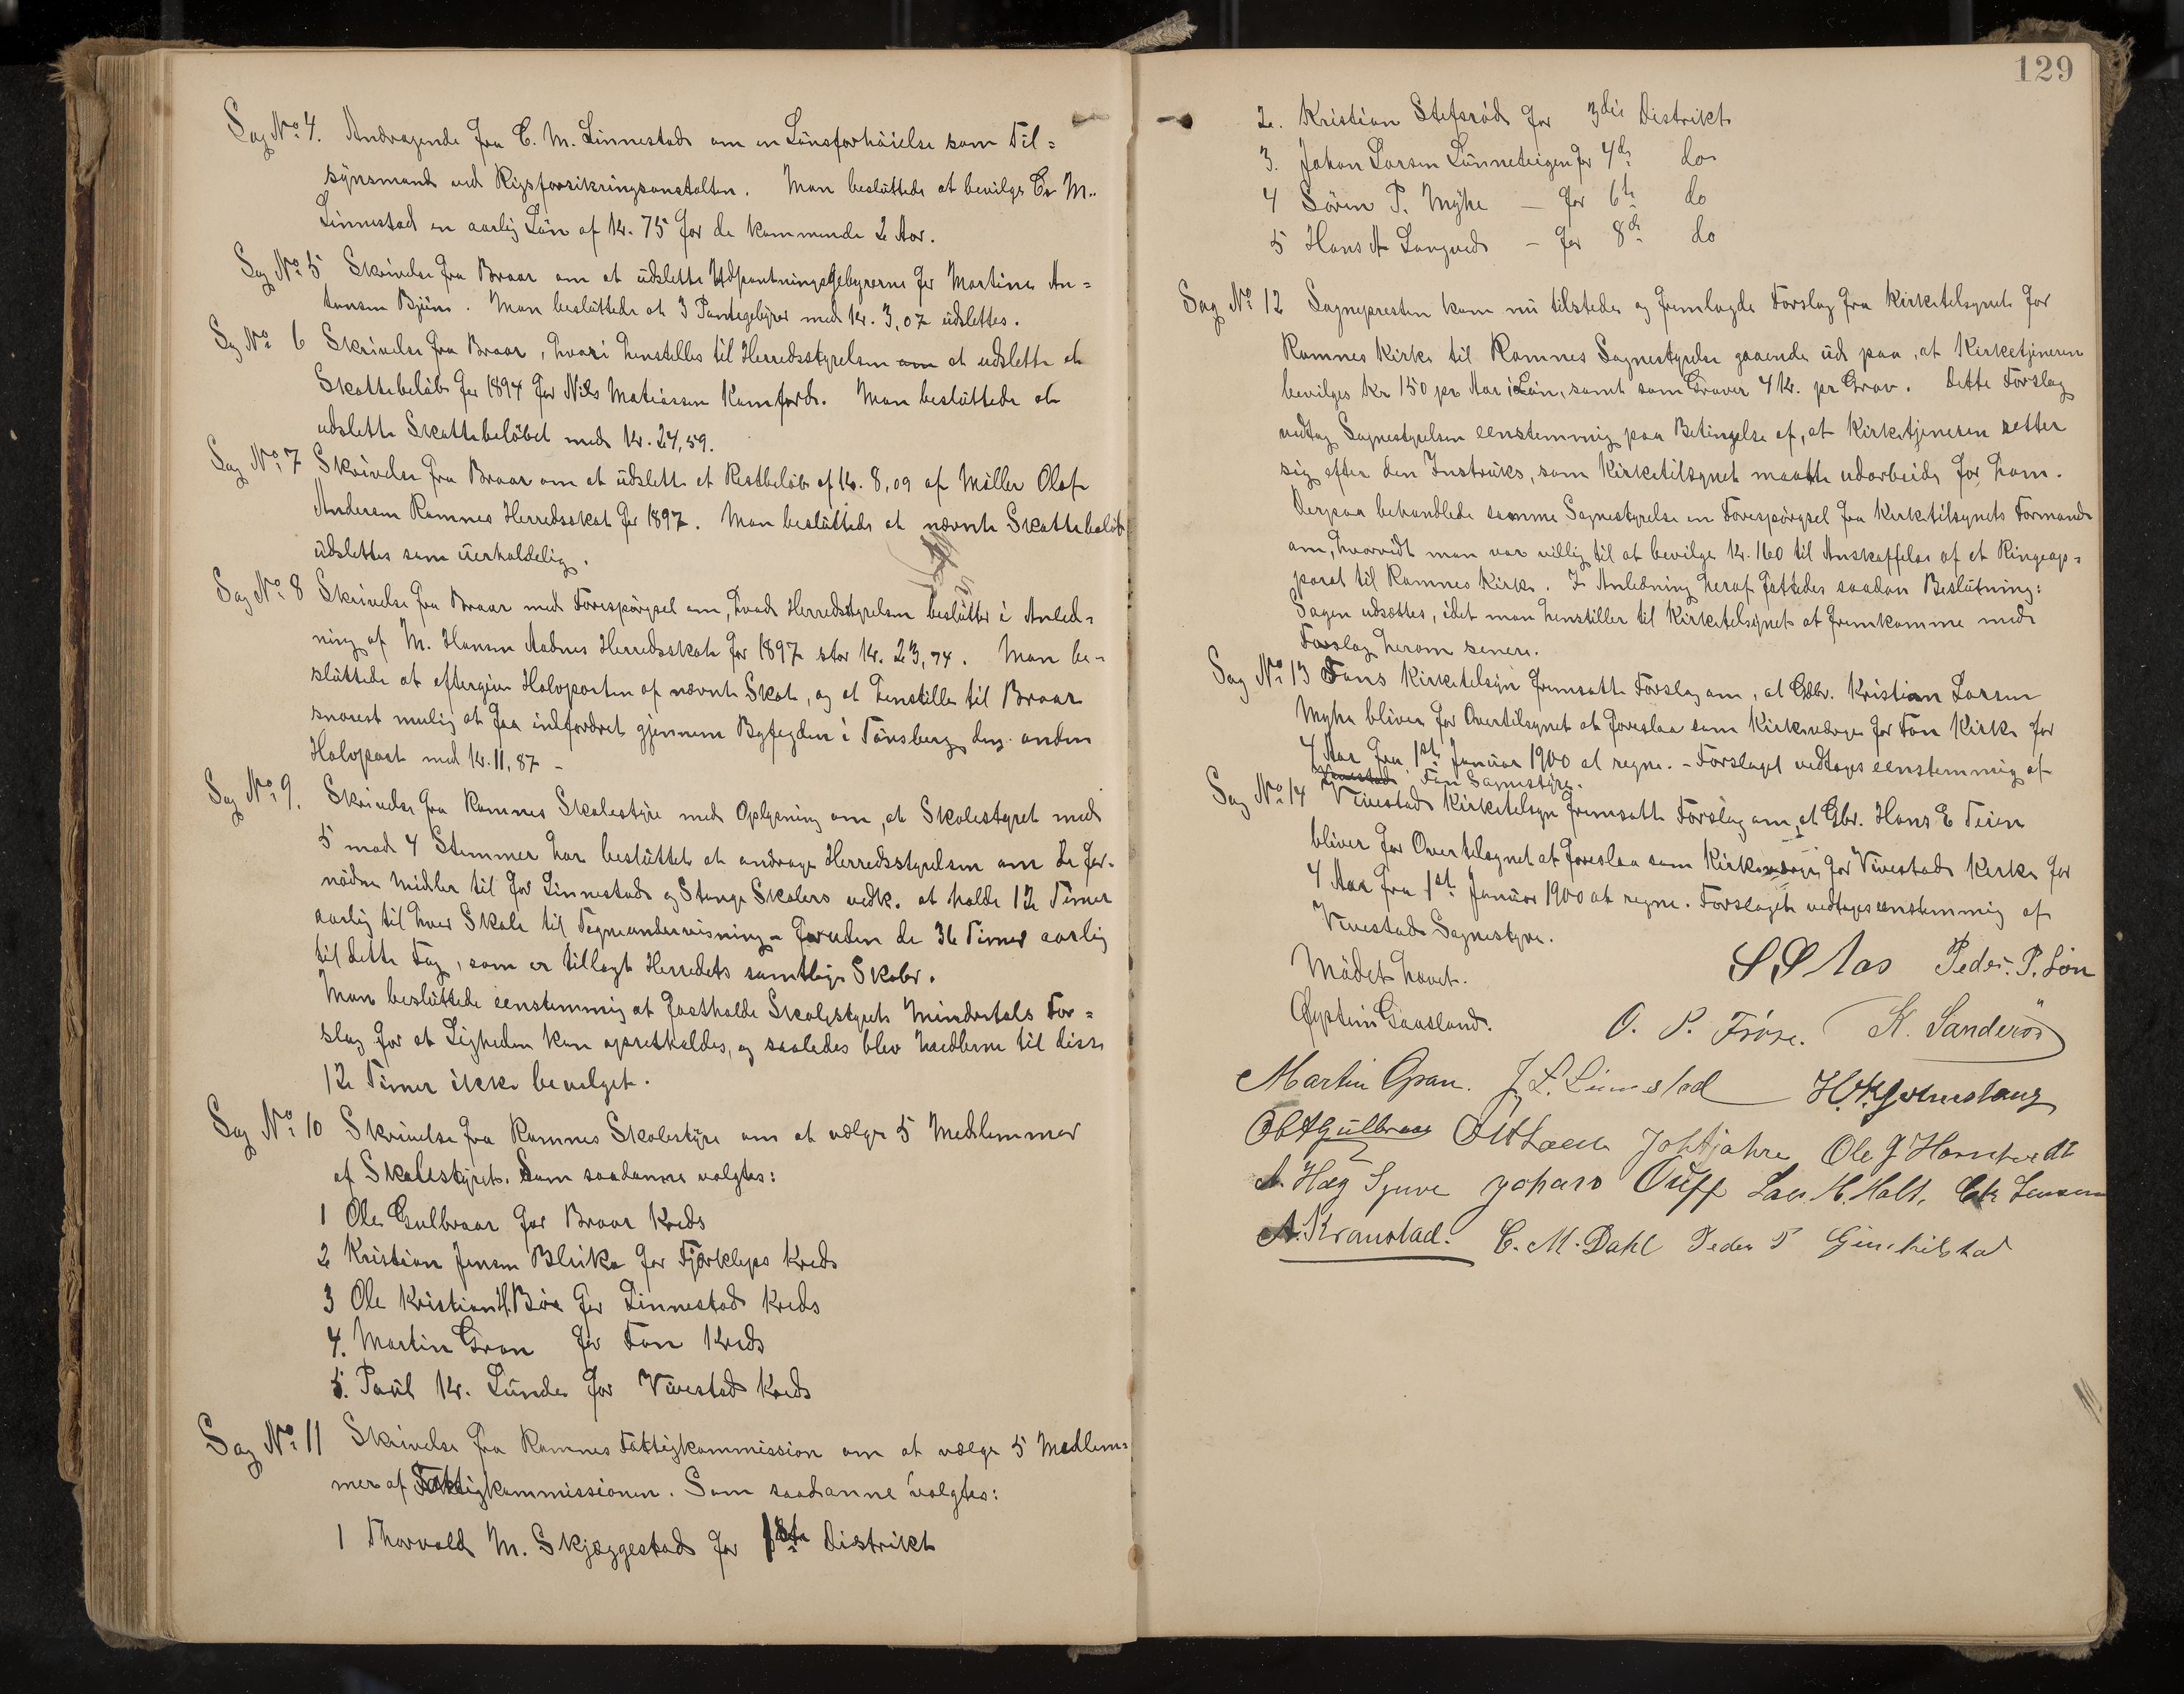 Sag No. 4. Andragende fra C. M. Linnestad om en Lønsforhøielse som Til=
synsmand ved Rigsforsikringsanstalten. Man besluttede at bevilge C. M.
Linnestad en aarlig Løn af Kr. 75 for de kommende 2 Aar.
Sag No. 5 Skrivelse fra Braar om at udslette Udpantningsgebyrerne for Martine An=
tonsen Bjüne. Man besluttede at 3 Pantegebyrer med Kr. 3,07 udslettes.
Sag No. 6 Skrivelse fra Braar, hvori henstilles til Herredsstyrelsen om at udslette et
Skattebeløb for 1894 for Nils Matiassen Kamfjord. Man besluttede at
udslette Skattebeløbet med Kr. 24,59.
Sag No. 7 Skrivelse fra Braar om at udslette et Restbeløb af Kr. 8,09 af Møller Olaf
Andersen Ramnes Herredsskat for 1897. Man besluttede at nævnte Skattebeløb
udslettes som uerholdelig.
Sag No. 8 Skrivelse fra Braar med Forespørgsel om, hvad Herredsstyrelsen beslutter i Anled=
ning af M. Hansen Aadnes Herredsskat for 1897 stor Kr. 23,74. Man be=
sluttede at eftergive Halvparten af nævnte Skat, og at henstille til Braar
snarest mulig at faa indfordret gjennem Byfogden i Tønsberg den anden
Halvpart med Kr. 11,87 –
Sag No. 9. Skrivelse fra Ramnes Skolestyre med Oplysning om, at Skolestyret med
5 mod 4 Stemmer har besluttet at andrage Herredsstyrelsen om de for=
nødne Midler til for Linnestad og Stange Skolers vedk. at holde 12 Timer
aarlig til hver Skole til Tegneundervisning – foruden de 36 Timer aarlig
til dette Fag, som er tillagt Herredets samtlige Skoler.
Man besluttede eenstemmig at fastholde Skolestyrets Mindretals For=
slag for at Ligheden kan opretholdes, og saaledes blev Midlerne til disse
12 Timer ikke bevilget.
Sag No. 10 Skrivelse fra Ramnes Skolestyre om at vælge 5 Medlemmer
af Skolestyret. Som saadanne valgtes:
1 Ole Gulbraar for Braar Kreds
2 Kristian Jensen Bleika for Fjærkleps Kreds
3 Ole Kristian H. Bøe for Linnestad Kreds
4. Martin Gran for Fon Kreds
5. Paul Kr. Lunde for Vivestad Kreds
Sag No. 11 Skrivelse fra Ramnes Fattigkommission om at vælge 5 Medlem=
mer af Fattigkommissionen. Som saadanne valgtes:
1 Thorvald M. Skjeggestad for 1ste Distrikt
129
2. Kristian Stefsrød for 3die Distrikt
3. Johan Larsen Lønneteigen for 4de do
4 Søren P. Myhre — for 6te do
5 Hans A Langved – for 8de do
Sag No. 12 Sognepresten kom nu tilstede og fremlagde Forslag fra Kirketilsynet for
Ramnes Kirke til Ramnes Sognestyrelse gaaende ud paa, at Kirketjeneren
bevilges Kr 150 pr Aar i Løn, samt som Graver 4 Kr. pr Grav. Dette Forslag
vedtog Sognestyrelsen eenstemmig paa Betingelse af, at Kirketjeneren retter
sig efter den Instruks, som Kirketilsynet maatte udarbeide for ham.
Derpaa behandlede samme Sognestyrelse en Forespørgsel fra Kirketilsynets Formand
om, hvorvidt man var villig til at bevilge Kr. 160 til Anskaffelse af et Ringeap=
parat til Ramnes Kirke. I Anledning heraf fattedes saadan Beslutning:
Sagen udsættes, idet man henstiller til Kirketilsynet at fremkomme med
Forslag herom senere.
Sag No. 13 Fons Kirketilsyn fremsatte Forslag om, at Gbr. Kristian Larsen
Myhre bliver for Overtilsynet at foreslaa som Kirkeværge for Fon Kirke for
4 Aar fra 1st Januar 1900 at regne. – Forslaget vedtages eenstemmig af
Fon Sognestyre.
Sag No. 14 Vivestad Kirketilsyn fremsatte Forslag om, at Gbr. Hans E Teien
bliver for Overtilsynet at foreslaa som Kirkeværge for Vivestad Kirke for
4 Aar fra 1st Januar 1900 at regne. Forslaget vedtages eenstemmig af
Vivestad Sognestyre.
Mødet hævet. S. S. Aas Peder. P. Løn
Øystein Gaasland. O. P. Frøse. K. Sanderød
Martin Gran. J. L. Linnestad
Johtjahre Ole J Horntvedt
A. Høg Johan Lars H. Holt.
A. Kranstad. C. M. Dahl Peder P